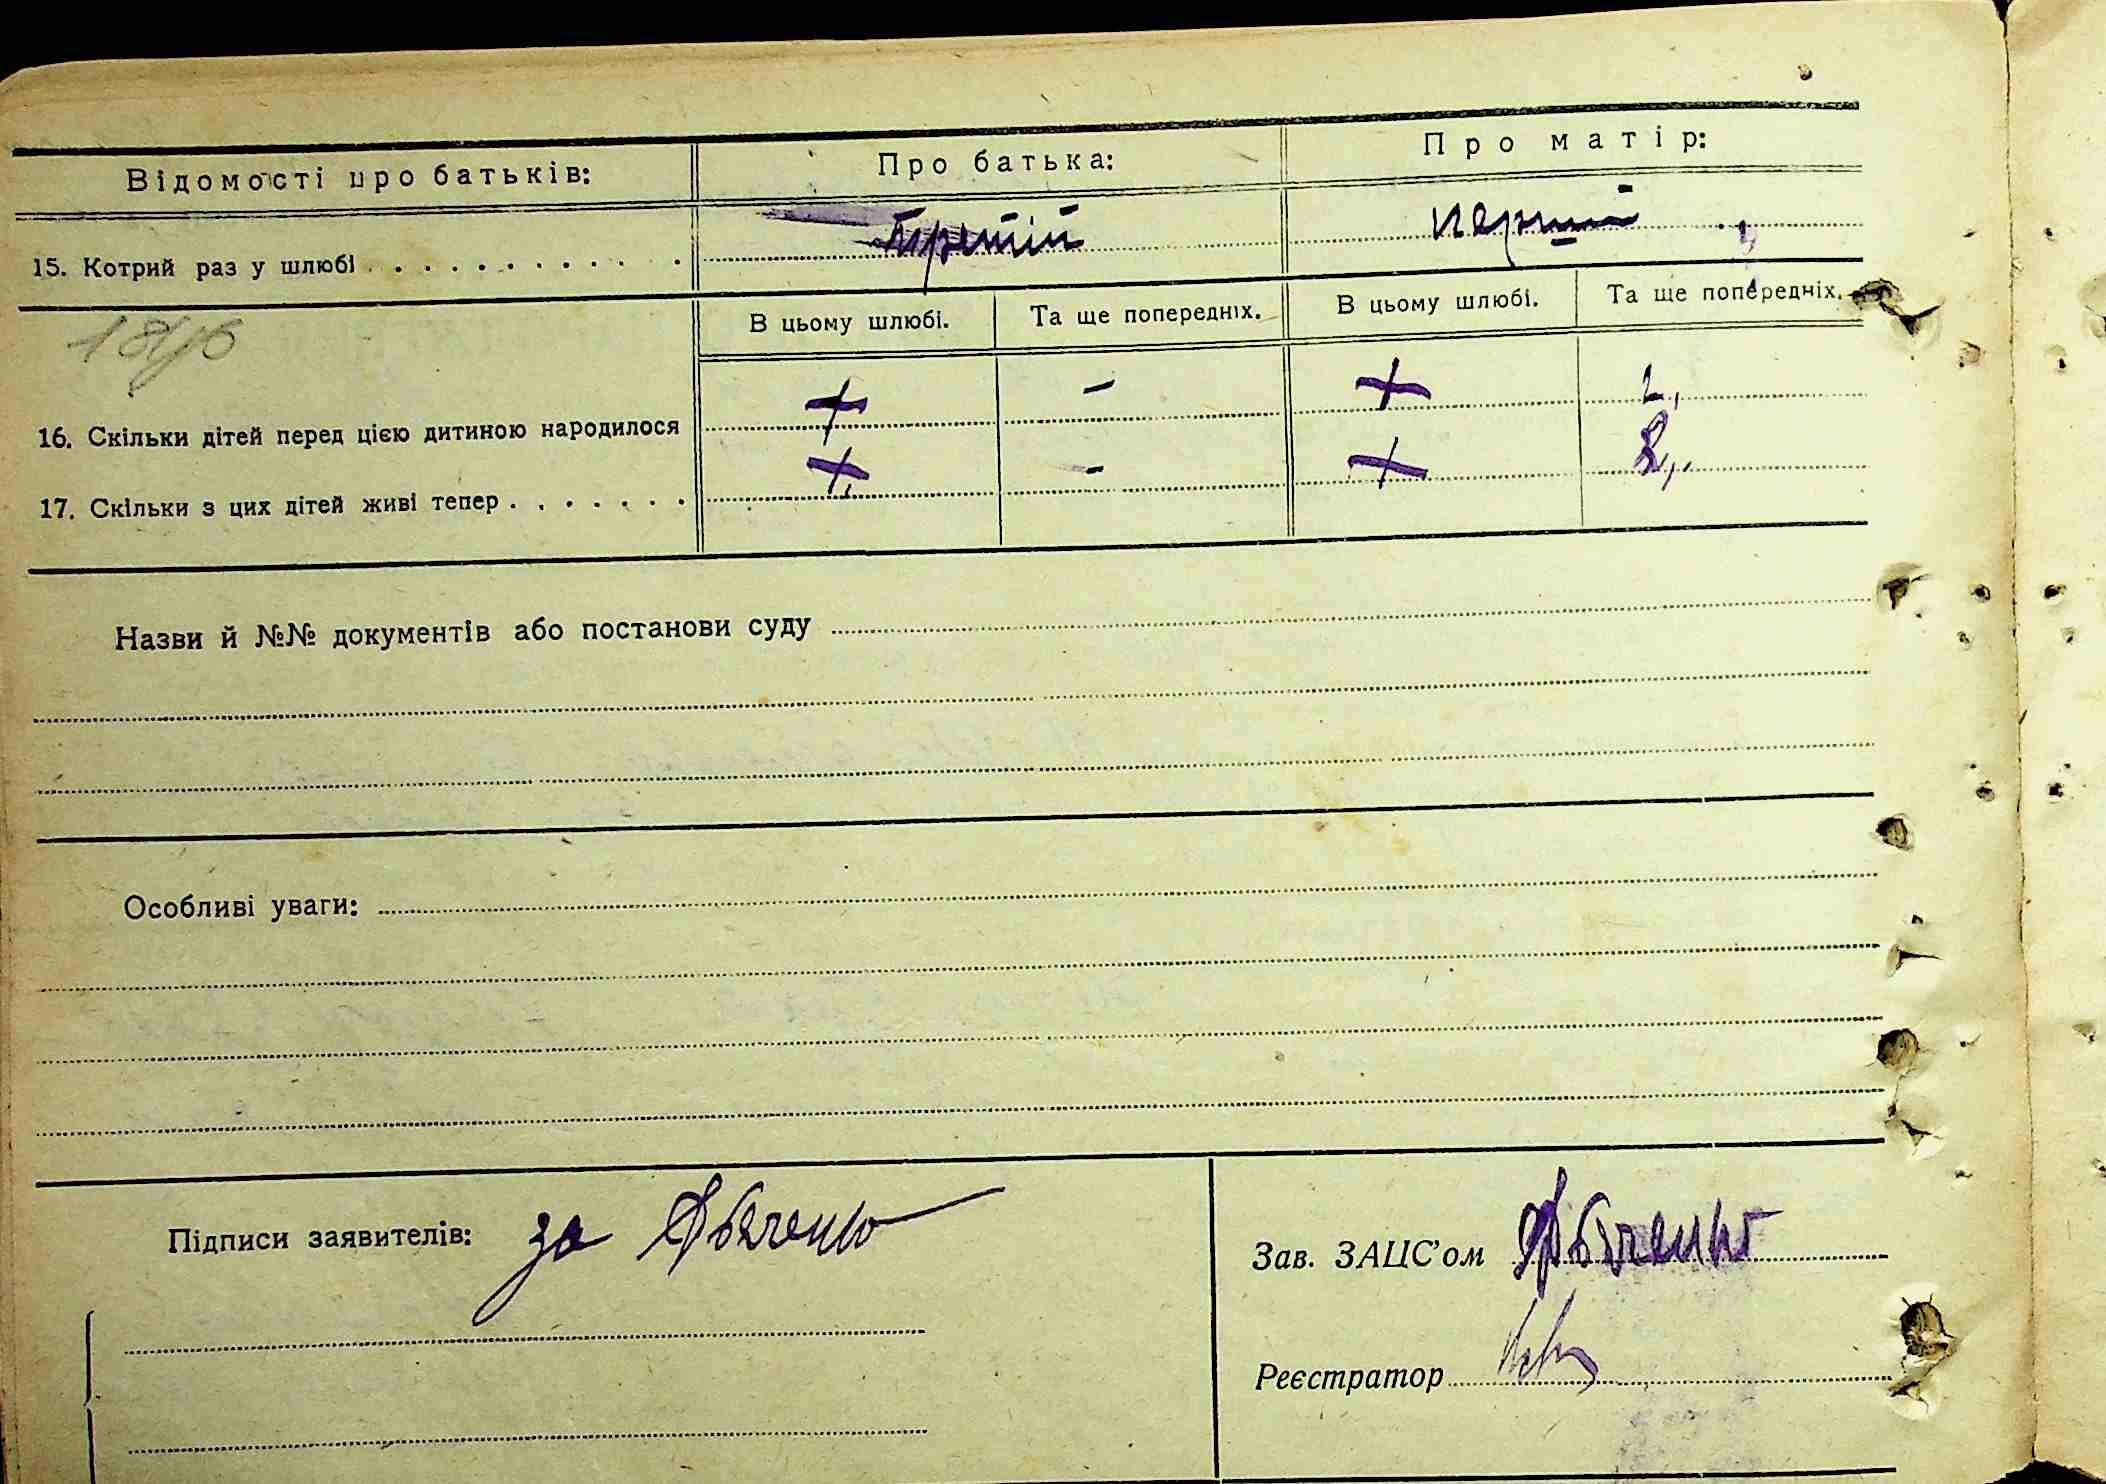 Відомості про батьків: Про батька: Про матір:
15. Котрий раз у шлюбі . . . . . . . . . . . . Третій перший
В цьому шлюбі. Та ще попередніх. В цьому шлюбі. Та ще попередніх.
16. Скільки дітей перед цією дитиною народилося + - + 2,
17. Скільки з цих дітей живі тепер . . . . . . . + - + 2,
Назви й №№ документів або постанови суду
Особливі уваги:
Підписи заявителів: за Дяченко
Зав. ЗАЦС'ом Дяченко
Реєстратор